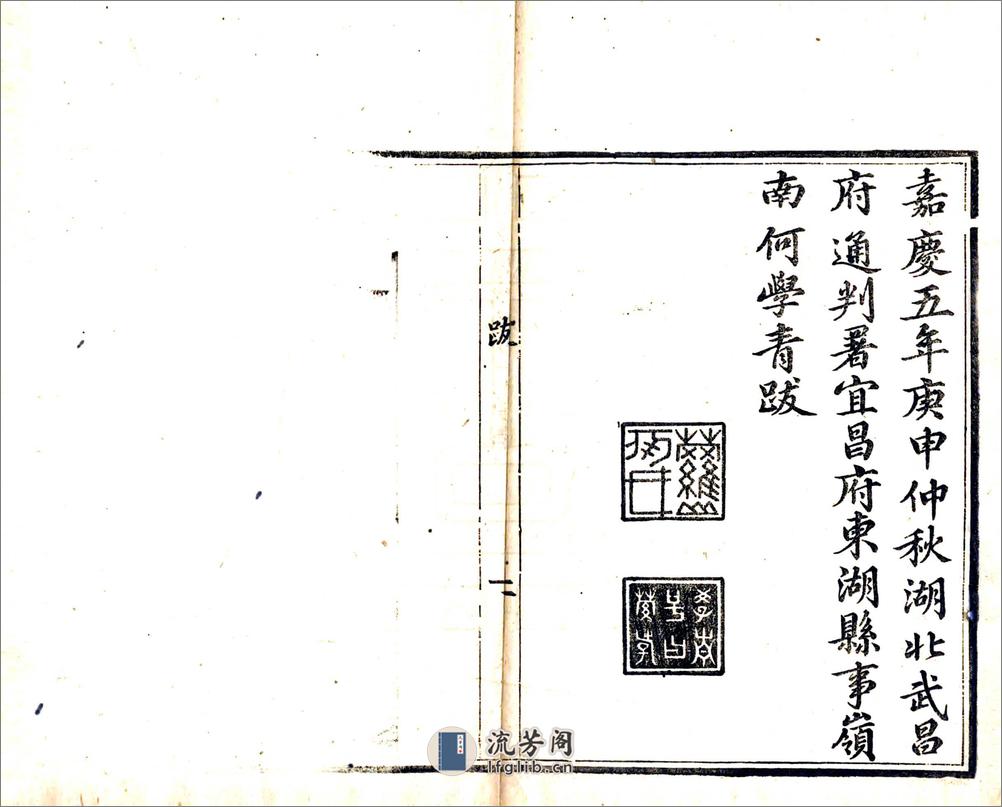 嘉慶五年庚申仲秋湖北武昌
府通判署宜昌府東湖縣事嶺
南何學青跋
跋
二
流芳阁
lfglib.cn